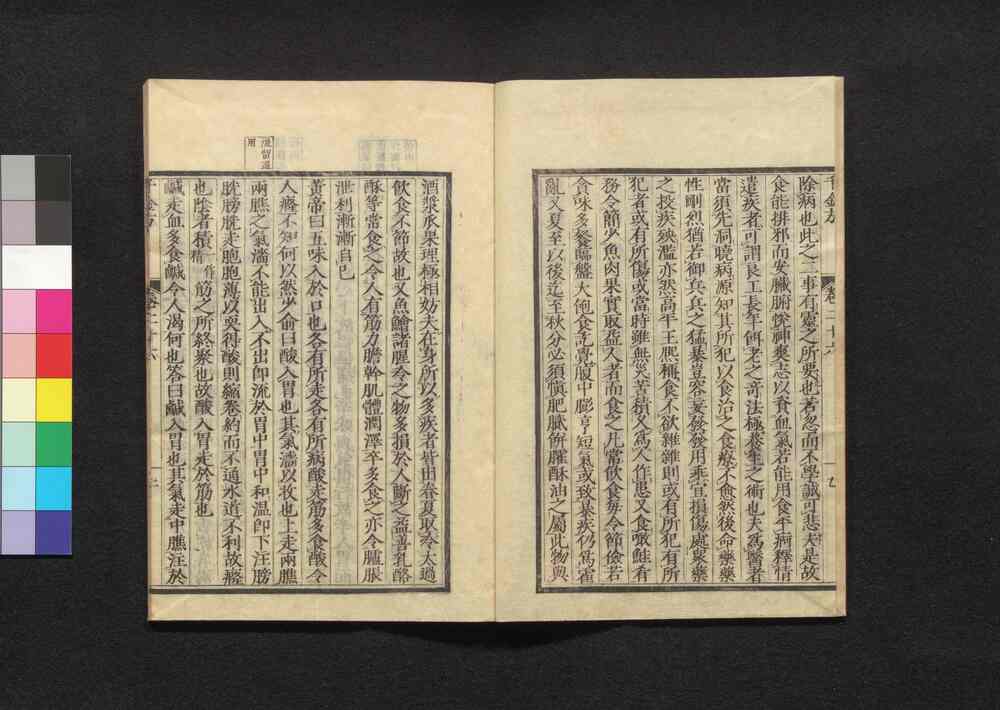 除病也此之二事有靈之所要也若忽而不學誠可悲夫是故
食能排邪而安臟腑悅神爽志以資血氣若能用食平痾釋情
遣疾者可謂良工長年餌老之奇法極養生之術也夫爲醫者
當須先洞曉病源知其所犯以食治之食療不愈然後命藥藥
性剛烈猶若御兵兵之猛暴豈容妄發發用乖宜損傷處衆藥
之投疾殃濫亦然高平王熙稱食不欲雜雜則或有所犯有所
犯者或有所傷或當時雖無災苦積久爲人作患又食噉鮭肴
務令簡少魚肉果實取益人者而食之凡常飲食每令節儉若
貪味多餐臨盤大飽食訖覺腹中膨亨短氣或致暴疾仍爲霍
亂又夏至以後迄至秋分必須愼肥膩餅臛酥油之屬此物與
酒漿瓜果理極相妨夫在身所以多疾者皆由春夏取冷太過
飲食不節故也又魚鱠諸腥冷之物多損於人斷之益善乳酪
酥等常食之令人有筋力膽幹肌體潤澤卒多食之亦令臚脹
泄利漸漸自已
黃帝曰五味入於口也各有所走各有所病酸走筋多食酸令
人癃不知何以然少俞曰酸入胃也其氣濇以收也上走兩膲
兩膲之氣濇不能出入不出即流於胃中胃中和溫即下注膀
胱膀胱走胞胞薄以耎得酸則縮卷約而不通水道不利故癃
也陰者積一作精筋之所終聚也故酸入胃走於筋也
鹹走血多食鹹令人渴何也答曰鹹入胃也其氣走中膲注於
卷二十六